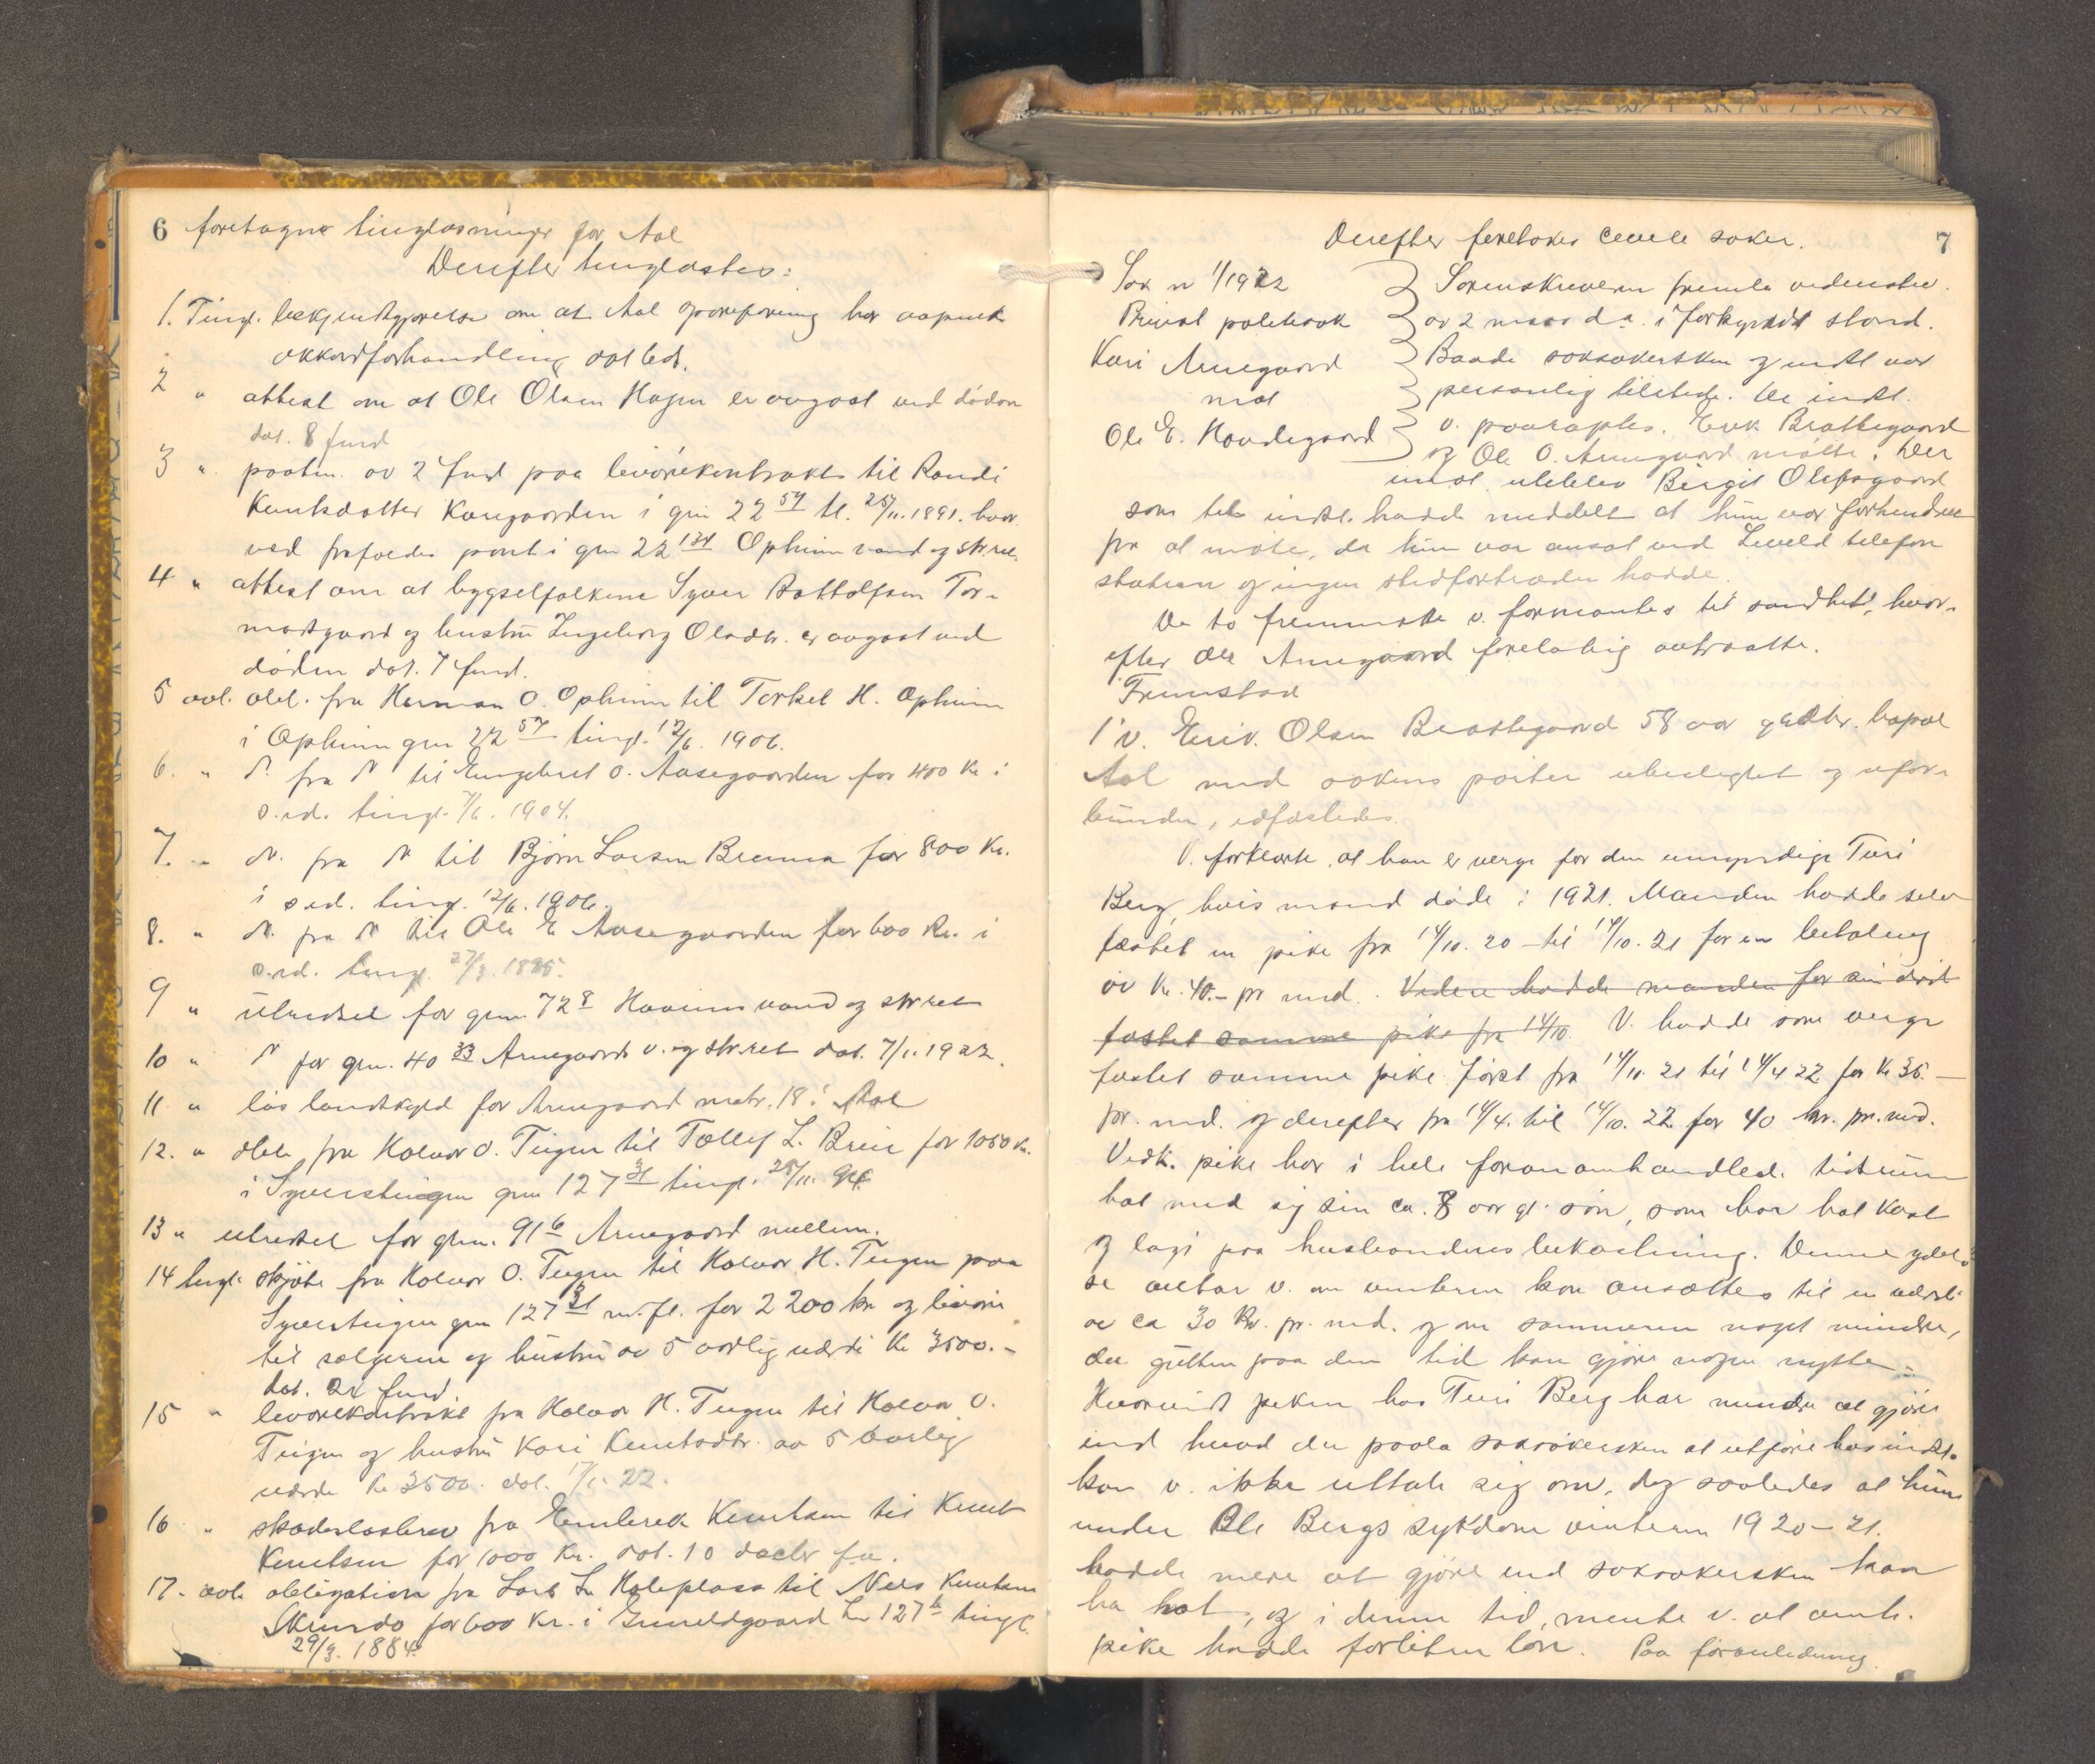 6 foretagne tinglæsninger for Aal
Derefter tinglæstes:
1. Tingl. bekjendtgjørelse om at Aal sporeforening har aapnet
akkordforhandling
2 " attest om at Ole Olsen Hagen er avgaat ved døden
dat. 8 ds.
3 " paategn. av 2 ds. paa levørekontrakt til Randi
Knutsdatter Kangaarden i gnr 22 57 tl. 25/11. 1891. hvor
ved frafaldes pant i gnr 22 134 Opheim vand og skr.ret
4 " attest om at bygselfolkene Syver Bottolfsen Tor-
modsgaard og hustru Ingeborg Olsdtr. er avgaat ved
døden dat. 7 ds.
5 avl. obl. fra Herman O. Opheim til Torkel H. Opheim
i Opheim gnr 22 57 tingl. 12/6. 1906.
6. " d. fra d til Engebret O. Aasegaarden for 400 Kr i
s.ed. tingl. 7/6. 1904.
7. " do. fra do til Bjørn Larsen Brenna for 800 Kr.
i s.ed. tingl. 12/6. 1906.
8. " do. fra do til Ole E Aasegaarden for 600 Kr. i
s.ed. tingl. 27/3. 1895.
9 " utredsel for gnr. 72 8 vand og skr.ret
10 " d for gnr. 40 33 Arnegaards v. og skr.ret dat. 7/1. 1922.
11 " løs landskyld for Arnegaard matr. 18 i Aal
12. " obl. fra Halvor O. Teigen til Tollef L. Breie for 1050 Kr.
i Syversteigen gnr 127 31 tingl. 25/11. 94
13 " utredsel for gnr. 91 6 Arnegaard mellem.
14 tingl. skjøte fra Halvor O. Teigen til Halvor H. Teigen paa
Syversteigen gnr 127 31 m.fl. for 2200 kr og levøre
til sælgeren og hustru av 5 aarlig værdi Kr 3500.-
dat. ds.
15 " levørekontrakt fra Halvor H. Teigen til Halvor O.
Teigen og hustru Kari Knutsdtr. av 5 aarlig
værdi Kr 3500. dat. 17/1. 22.
16 " skadesløsbrev fra Embrek Knutsen til Knut
Knutsen for 1000 Kr. dat. 10
17. avl. obligation fra Lars L. Holeplass til Nils Knutsen
Skurdo for 600 Kr. i Gunnildgaard 127 tingl.
29/3. 1884.
7
Derefter foretokes civile saker.
Sak nr 1/1922
Privat politisak
Kari Arnegaard
mot
Ole E. Hovdegaard
Sorenskriveren fremla vidnestev.
av 2 mars d.a. i forkyndt stand.
Baade saksøkersken og indst. var
personlig tilstede. De indst.
v. paaroptes. Eirik Brattegaard
og Ole O. Arnegaard møtte. Der
imot uteblev Birgit Olefsgaard
som til indst. hadde meddelt at hun var forhindret
fra at møte, da hun var ansat ved Leveld telefon
station og ingen stedfortræder hadde.
De to fremmøtte v. formantes til sandhet, hvor-
efter Ole Arnegaard foreløbig avtraatte.
Fremstod
1 v. Eirik Olsen Brattegaard 58 aar gaardbr. bopæl
Aal med sakens parter ubeslegtet og ufor-
bunden, edfæstedes.
V. forklarte at han er verge for den umyndige Turi
Berg, hvis mand døde i 1921. Manden hadde selv
fæstet en pike fra 14/10. 20 - til 14/10. 21 for en betaling
av Kr. 40.- pr md. Videre hadde manden før sin død
fæstet samme pike fra 14/10. V. hadde som verge
fæstet samme pike først fra 14/10. 21 til 14/4 22 for Kr 35.-
pr. md. og derefter fra 14/4. til 14/10. 22 for 40 kr. pr. md.
Vedk. pike har i hele foranomhandlede tidsrum
hat med sig sin ca. 8 aar gl. søn, som har hat kost
og losji paa husbondens bekostning. Denne ydel-
se antar v. om vinteren kan ansættes til en værdi
av ca 30 Kr. pr. md. og om sommeren noget mindre,
da gutten paa den tid kan gjøre nogen nytte.
Hvorvidt piken hos Turi Berg har mindre at gjøre
end hvad der paala saksøkersken at utføre hos indst.
kan v. ikke uttale sig om, dog saaledes at hun
under Ole Bergs sykdom vinteren 1920-21.
hadde mere at gjøre end saksøkersken kan
ha hat, og i denne tid, mente v. at omh.
pike hadde forliten løn. Paa foranledning